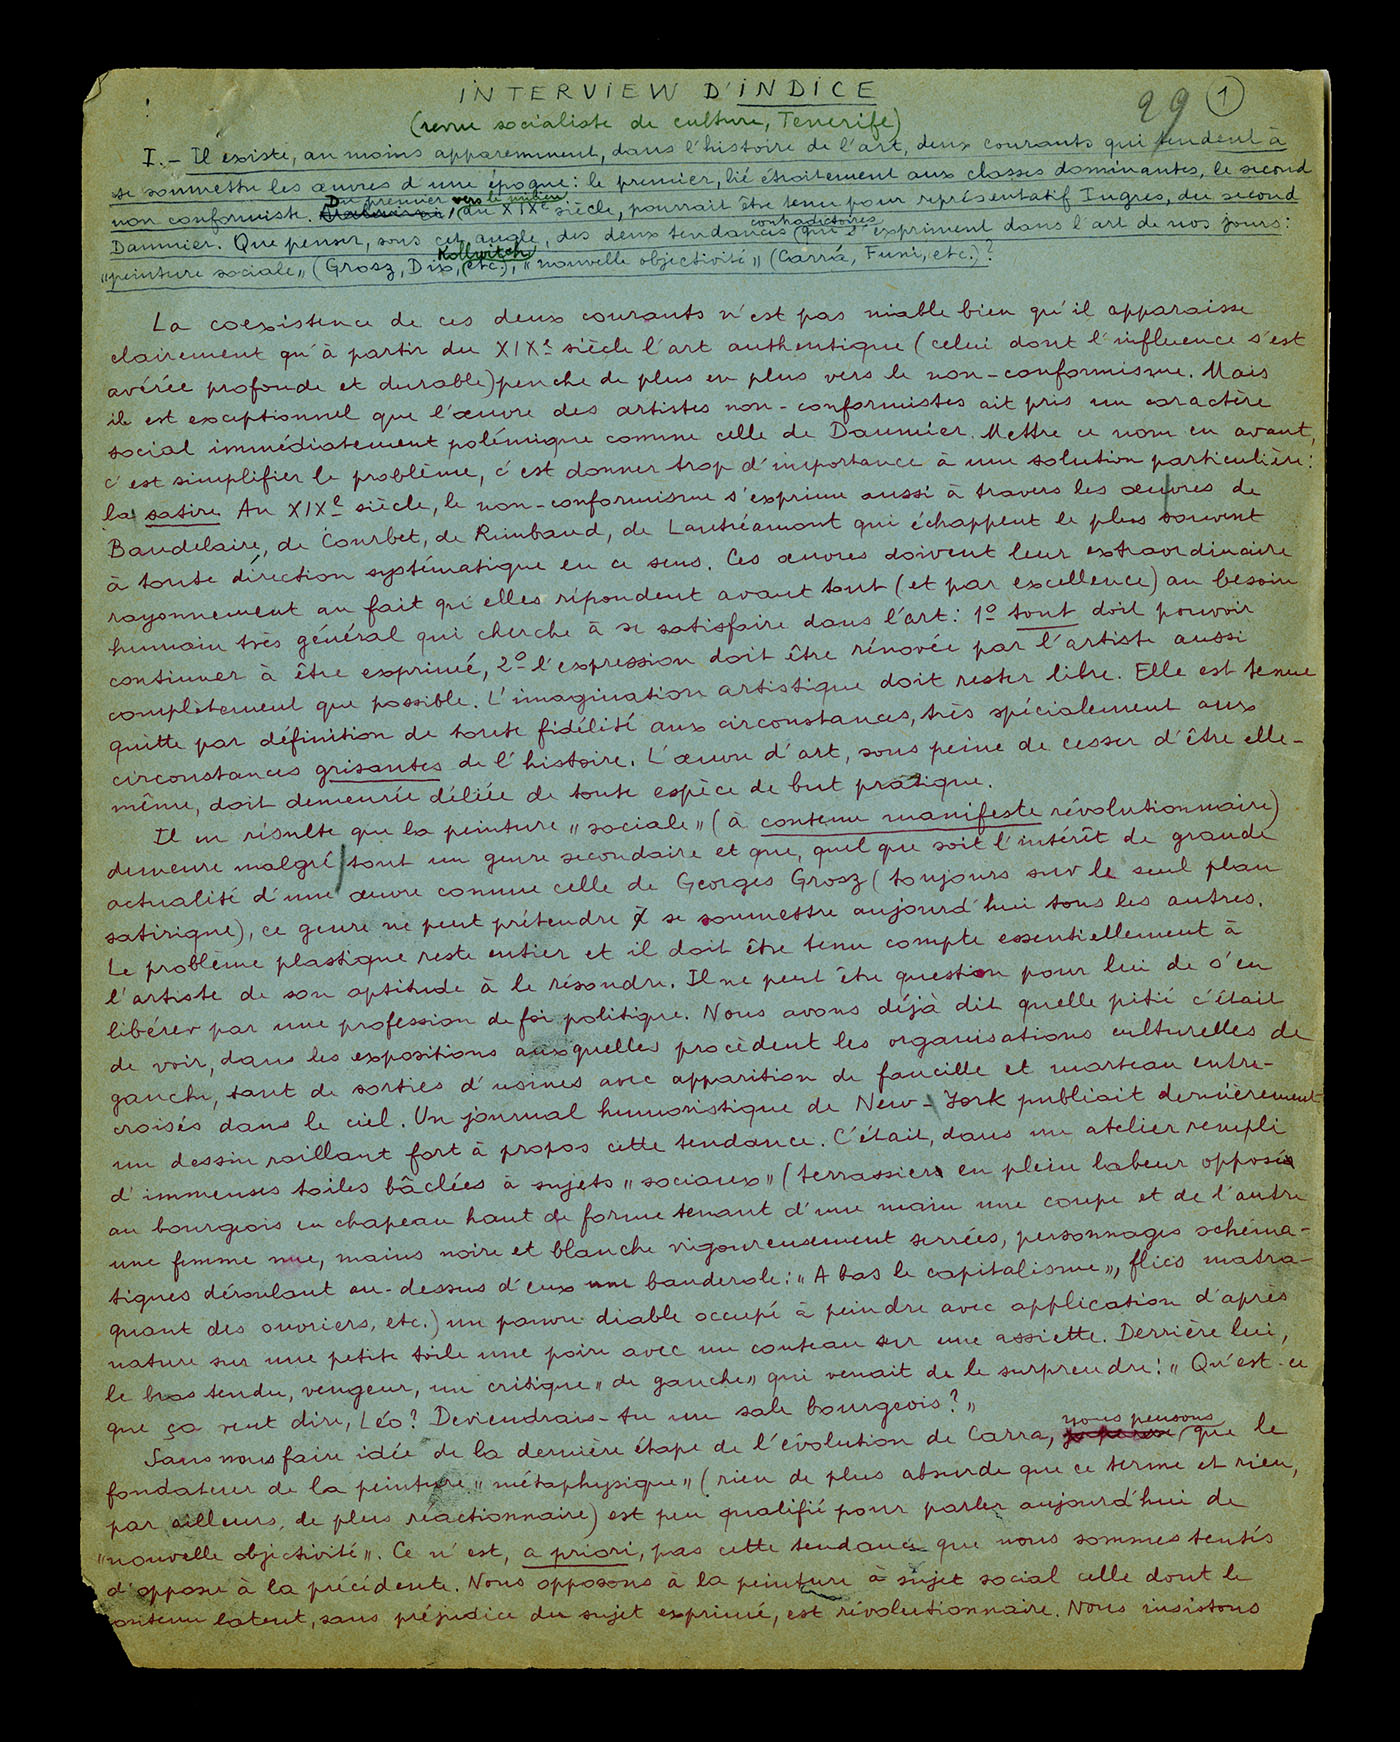 INTERVIEW D'INDICE
29 1
(revue socialiste de culture, Tenerife)
I.- Il existe, au moins apparemment, dans l'histoire de l'art, deux courants qui tendent à
se soumettre les œuvres d'une époque: le premier, lié étroitement aux classes dominantes, le second
Du premier vers le milieu
non conformiste. du XIXe siècle, pourrait être tenu pour représentatif Ingres, du second
contradictoires
Daumier. Que penser, sous cet angle, des deux tendances qui s'expriment dans l'art de nos jours:
Kollwitch
"peinture sociale" (Grosz, Dix, etc.), "nouvelle objectivité" (Carrá, Funi, etc.)?
La coexistence de ces deux courants n'est pas niable bien qu'il apparaisse
clairement qu'à partir du XIXe siècle l'art authentique (celui dont l'influence s'est
avérée profonde et durable) penche de plus en plus vers le non-conformisme. Mais
il est exceptionnel que l'œuvre des artistes non-conformistes ait pris un caractère
social immédiatement polémique comme celle de Daumier. Mettre ce nom en avant,
c'est simplifier le problème, c'est donner trop d'importance à une solution particulière:
la satire. Au XIXe siècle, le non-conformisme s'exprime aussi à travers les œuvres de
Baudelaire, de Courbet, de Rimbaud, de Lautréamont qui échappent le plus souvent
à toute direction systématique en ce sens. Ces œuvres doivent leur extraordinaire
rayonnement au fait qu'elles répondent avant tout (et par excellence) au besoin
humain très général qui cherche à se satisfaire dans l'art: 1o tout doit pouvoir
continuer à être exprimé, 2o l'expression doit être rénovée par l'artiste aussi
complètement que possible. L'imagination artistique doit rester libre. Elle est tenue
quitte par définition de toute fidélité aux circonstances, très spécialement aux
circonstances grisantes de l'histoire. L'œuvre d'art, sous peine de cesser d'être elle-
même, doit demeurée déliée de toute espèce de but pratique.
Il en résulte que la peinture "sociale" (à contenu manifeste révolutionnaire)
demeure malgré tout un genre secondaire et que, quel que soit l'intérêt de grande
actualité d'une œuvre comme celle de Georges Grosz (toujours sur le seul plan
satirique), ce genre ne peut prétendre à se soumettre aujourd'hui tous les autres.
Le problème plastique reste entier et il doit être tenu compte essentiellement à
l'artiste de son aptitude à le résoudre. Il ne peut être question pour lui de s'en
libérer par une profession de foi politique. Nous avons déjà dit quelle pitié c'était
de voir, dans les expositions auxquelles procèdent les organisations culturelles de
gauche, tant de sorties d'usines avec apparition de faucille et marteau entre-
croisés dans le ciel. Un journal humoristique de New-York publiait dernièrement
un dessin raillant fort à propos cette tendance. C'était, dans un atelier rempli
d'immenses toiles bâclées à sujets "sociaux" (terrassiers en plein labeur opposés
au bourgeois en chapeau haut de forme tenant d'une main une coupe et de l'autre
une femme nue, mains noire et blanche vigoureusement serrées, personnages schéma-
tiques déroulant au-dessus d'eux une banderole: "A bas le capitalisme", flics matra-
quant des ouvriers, etc.) un pauvre diable occupé à peindre avec application d'après
nature sur une petite toile une poire avec un couteau sur une assiette. Derrière lui,
le bras tendu, vengeur, un critique "de gauche" qui venait de le surprendre: "Qu'est-ce
que ça veut dire, Léo? Deviendrais-tu un sale bourgeois?"
nous pensons
Sans nous faire idée de la dernière étape de l'évolution de Carra, que le
fondateur de la peinture "métaphysique" (rien de plus absurde que ce terme et rien,
par ailleurs, de plus réactionnaire) est peu qualifié pour parler aujourd'hui de
"nouvelle objectivité". Ce n'est, a priori, pas cette tendance que nous sommes tentés
d'opposer à la précédente. Nous opposons à la peinture à sujet social celle dont le
contenu latent, sans préjudice du sujet exprimé, est révolutionnaire. Nous insistons